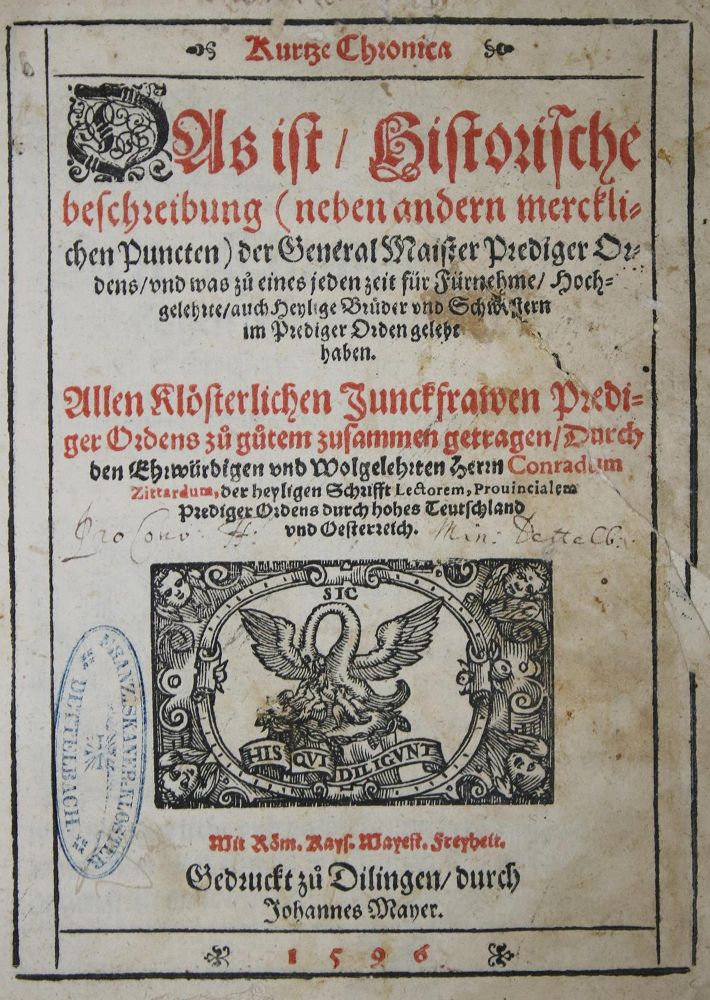 Kurtze Chronica
DAs ist / Historische
beschreibung (neben andern merckli-
chen Puncten) der General Maister Prediger Or-
dens/vnd was zů eines jeden zeit für Fürnehme/ Hoch-
gelehrte/auch Heylige Brüder vnd Schwestern
im Prediger Orden gelebt
haben.
Allen Klösterlichen Junckfrawen Predi-
ger Ordens zů gůtem zusammen getragen/Durch
den Ehrwürdigen vnd Wolgelehrten Herrn Conradum
Zittardum, der heyligen Schrifft Lectorem, Prouincialem
Prediger Ordens durch hohes Teutschland
vnd Oesterreich.
Pro Conv: Min: Dettelb:
SIC
HIS QVI DILIGVNT
FRANZISKANER-KLOSTER
DETTELBACH.
Mit Röm. Kays. Mayest. Freyheit.
Gedruckt zů Dilingen/durch
Johannes Mayer.
1596